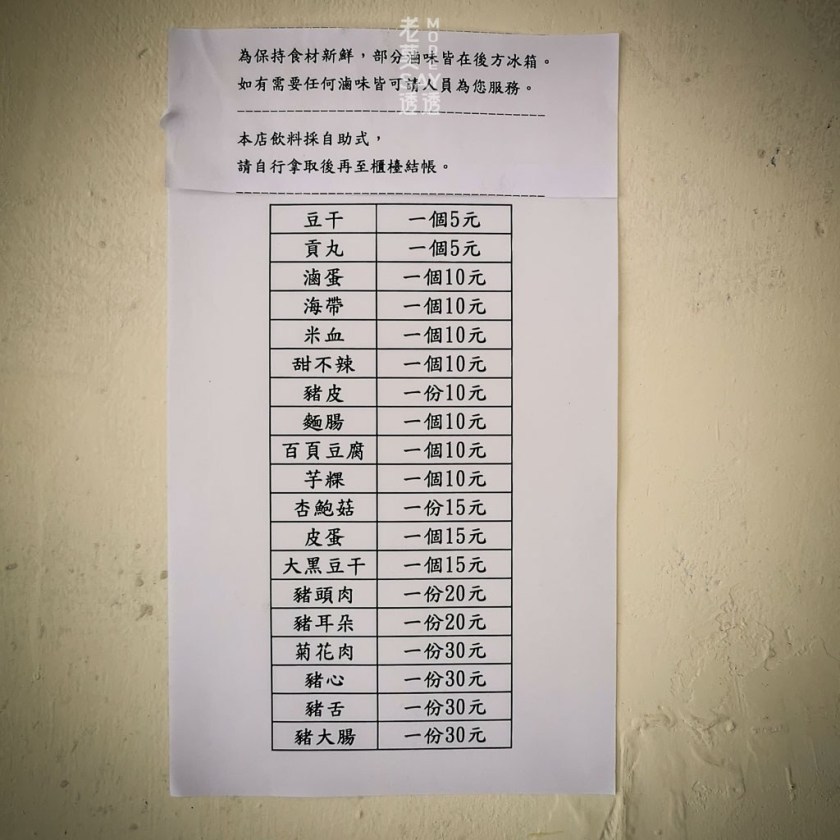 老莫SAY透透
MORE
為保持食材新鮮，部分滷味皆在後方冰箱。
如有需要任何滷味皆可請人員為您服務。
本店飲料採自助式，
請自行拿取後再至櫃檯結帳。
豆干 一個5元
貢丸 一個5元
滷蛋 一個10元
海帶 一個10元
米血 一個10元
甜不辣 一個10元
豬皮 一份10元
麵腸 一個10元
百頁豆腐 一個10元
芋粿 一個10元
杏鮑菇 一份15元
皮蛋 一個15元
大黑豆干 一個15元
豬頭肉 一份20元
豬耳朵 一份20元
菊花肉 一份30元
豬心 一份30元
豬舌 一份30元
豬大腸 一份30元